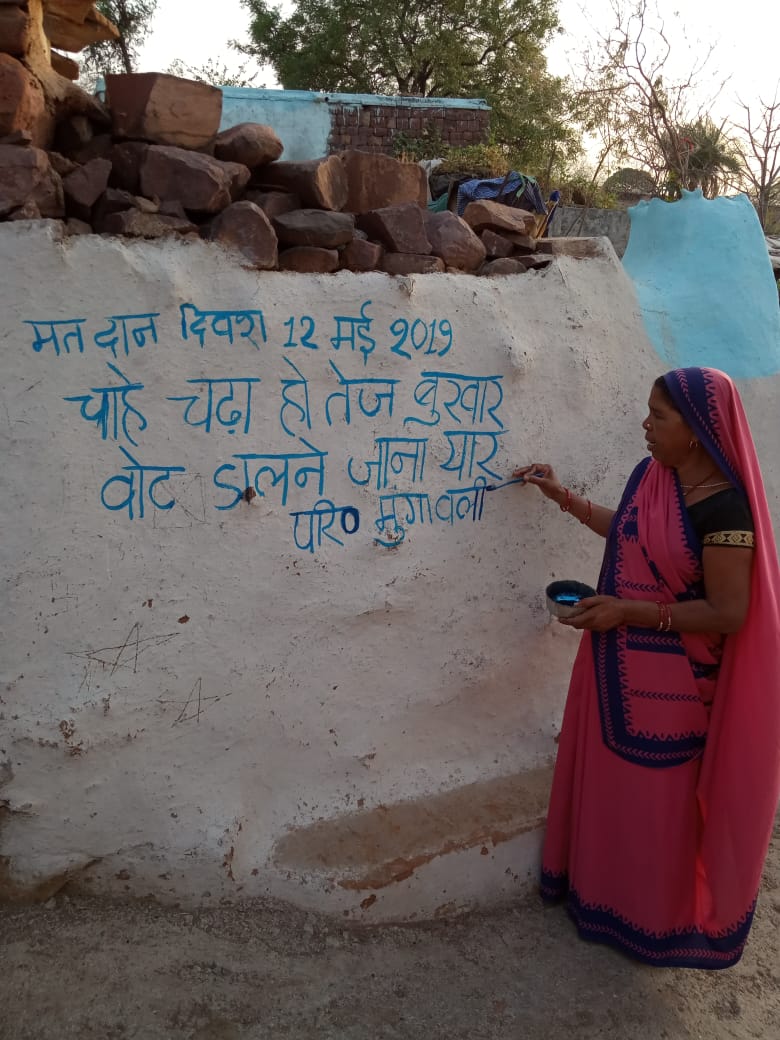 मत दान दिवश 12 मई 2019
चाहे चढ़ा हो तेज बुखार
वोट डालने जाना यार
परि० मुगावली